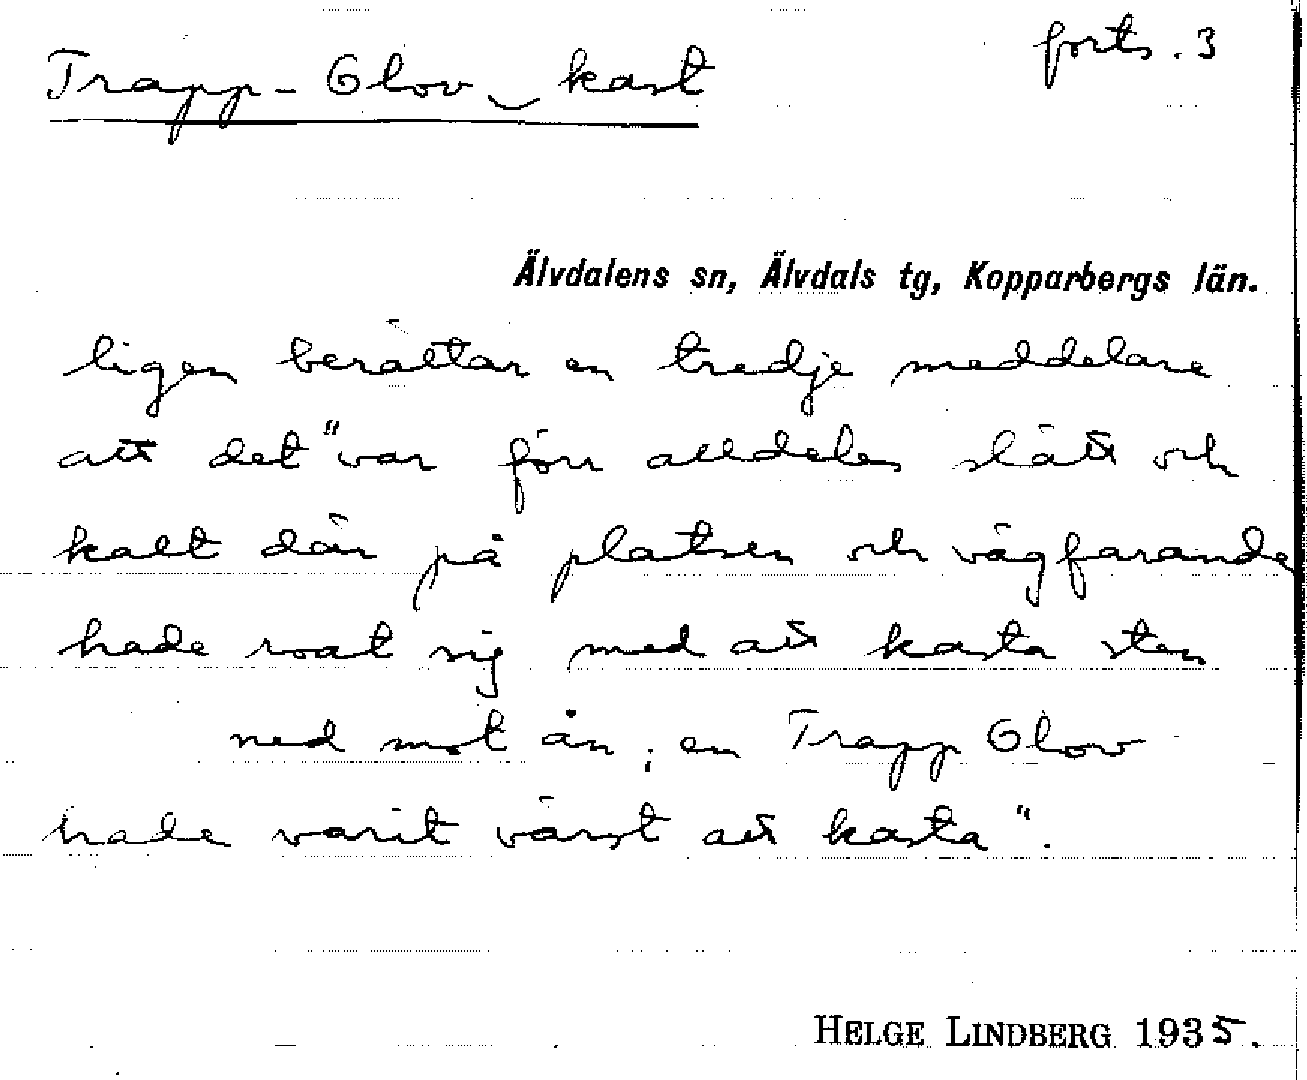 Trapp-Olov‿kast
forts. 3
Älvdalens sn, Älvdals tg, Kopparbergs län.
ligen berättar en tredje meddelare
att det "var förr alldeles slätt och
kalt där på platsen och vägfarande
hade roat sig med att kasta sten
ned mot ån; en Trapp Olov
hade varit värst att kasta".
HELGE LINDBERG 1935.